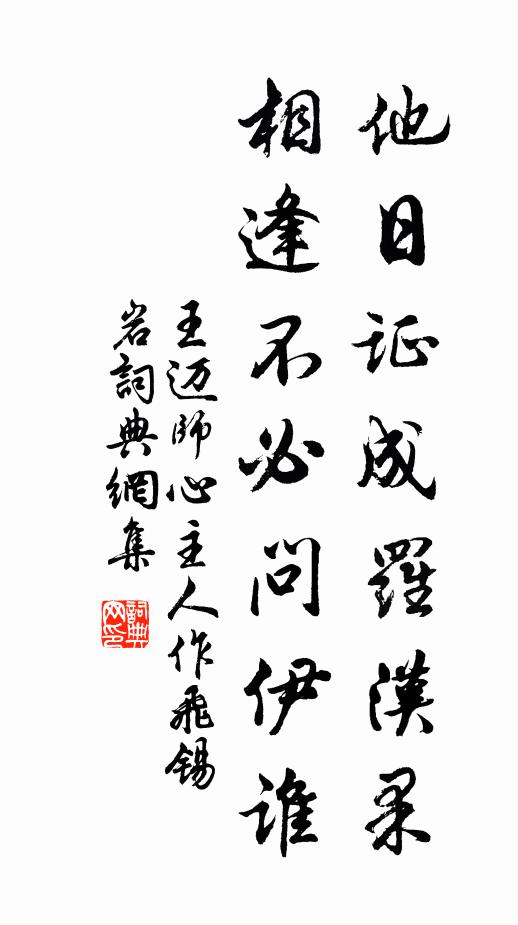 他日证成羅漢果
相逢不必问伊谁
王迈师心主人作飛锡
岩詞典網集
詞典
网印